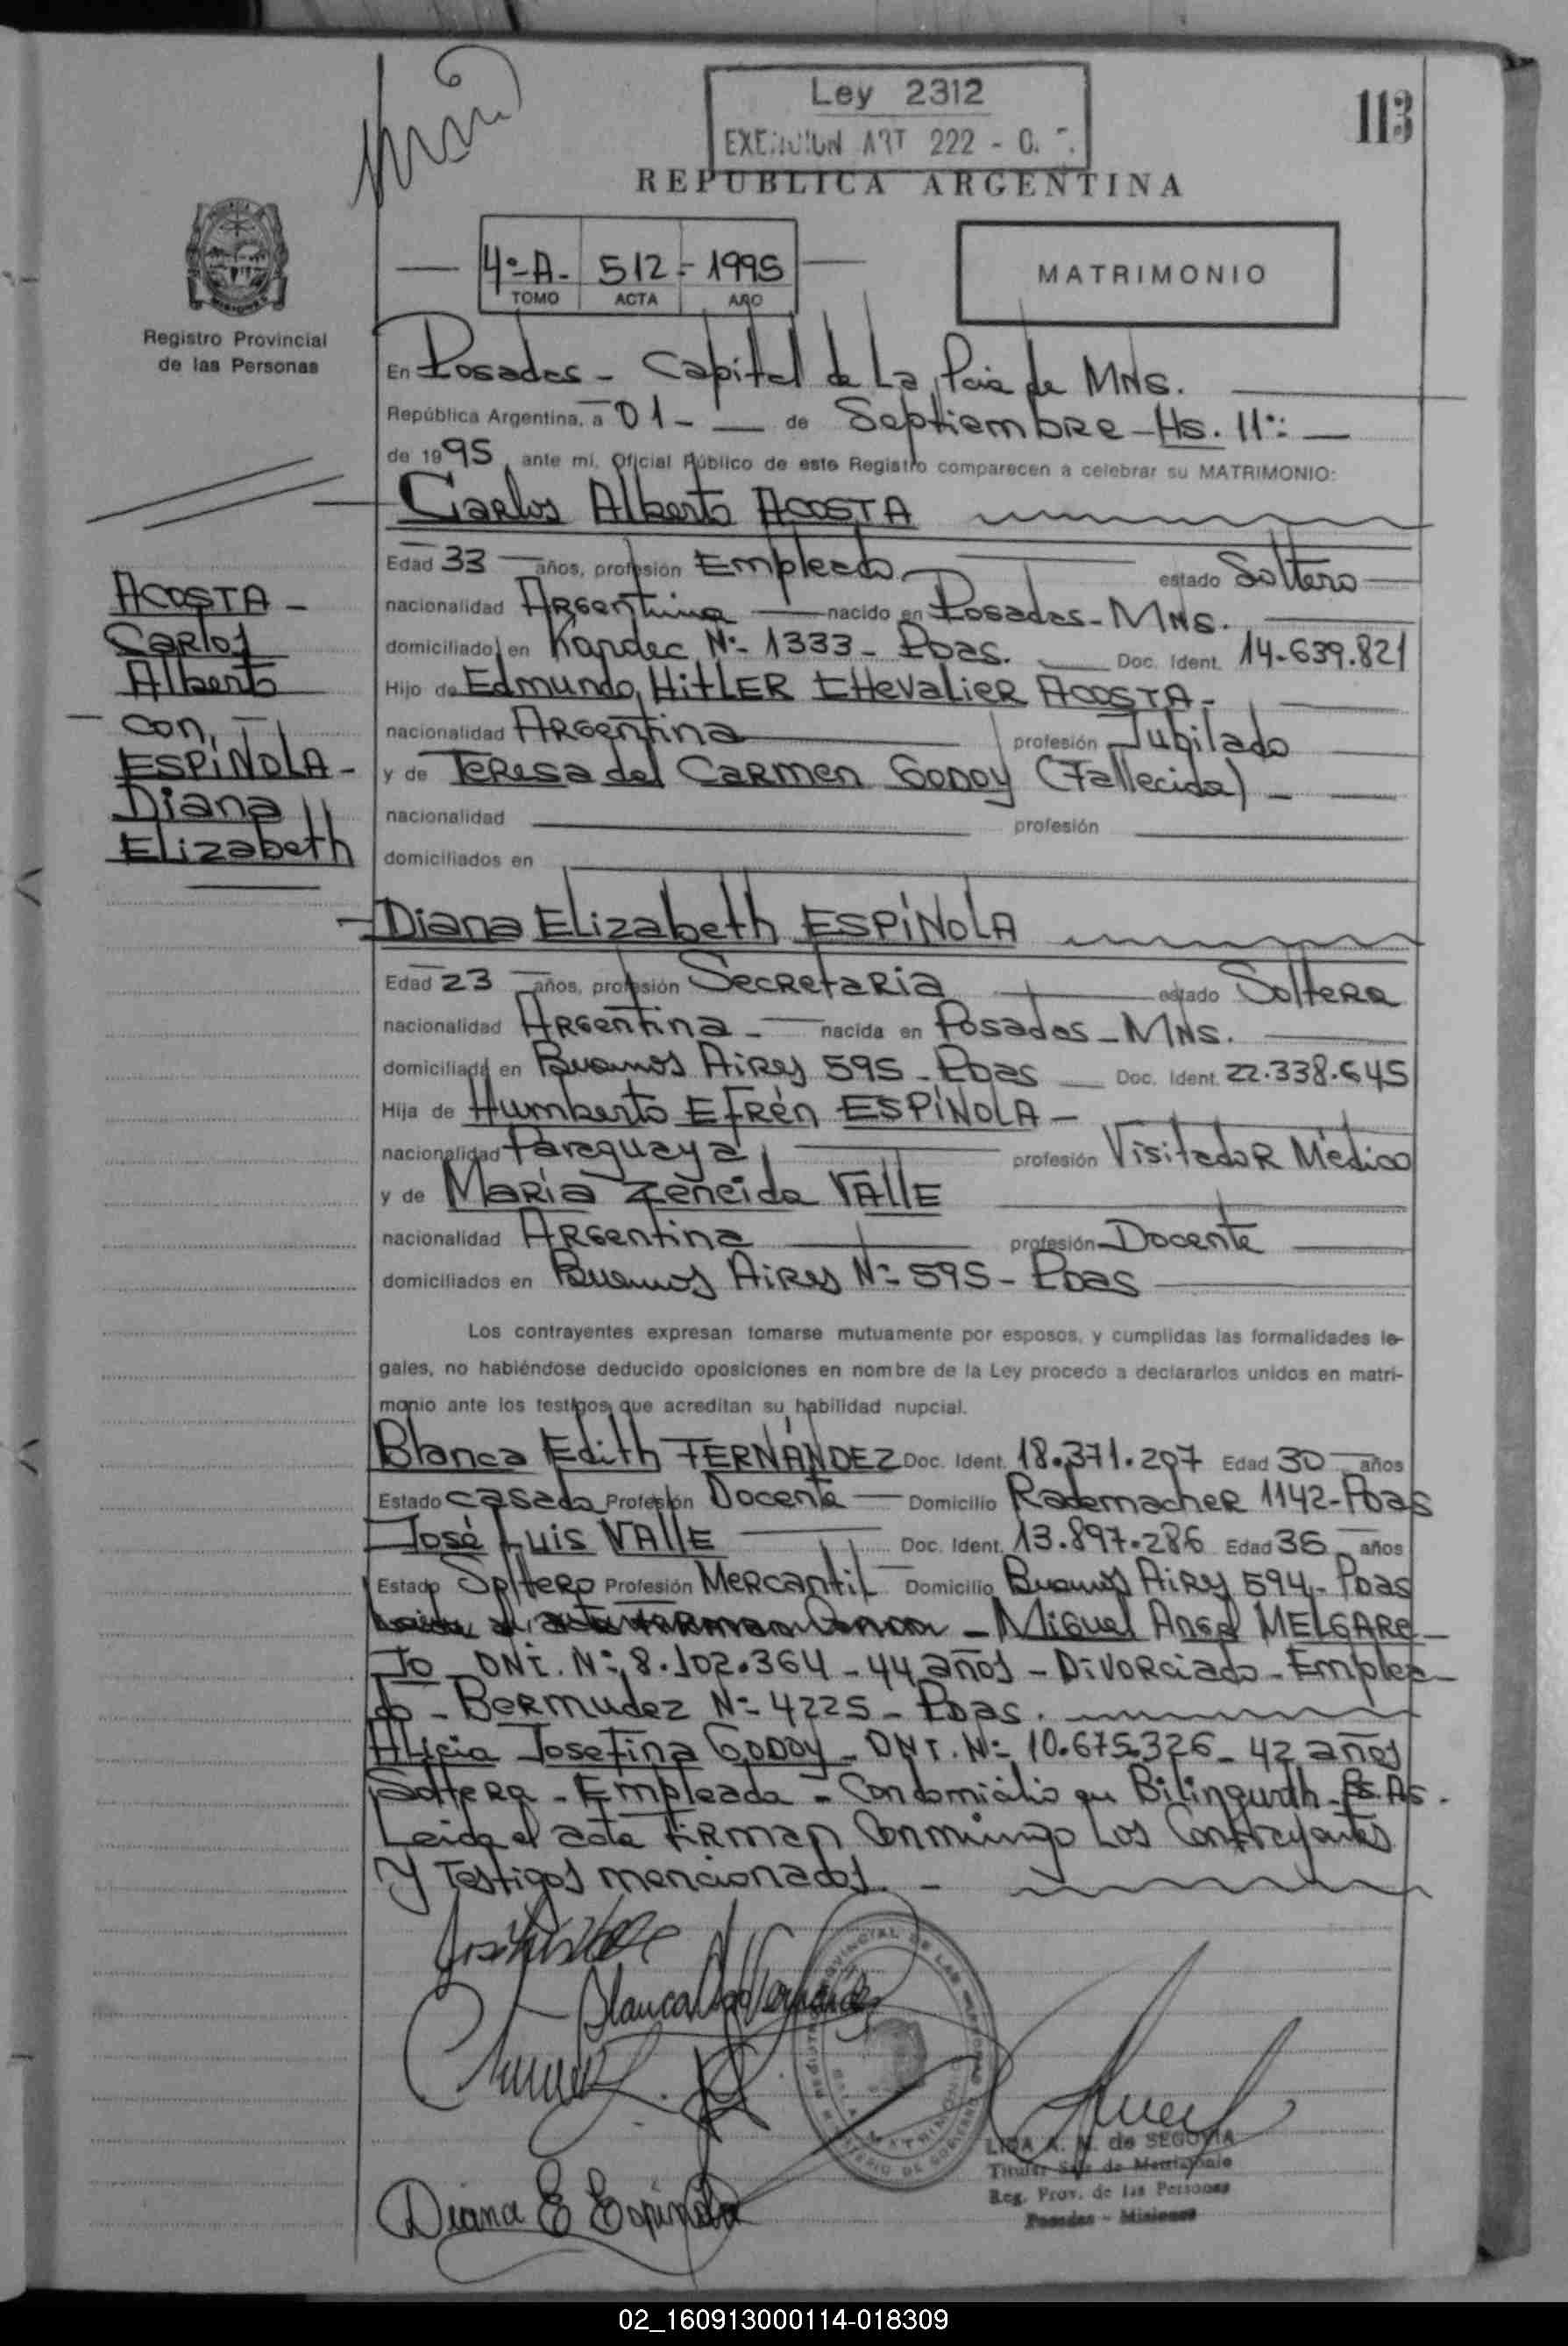 Ley 2312
ART 222 -
113
REPUBLICA ARGENTINA
4º-A- 512- 1995
TOMO ACTA AÑO
MATRIMONIO
Registro Provincial
de las Personas
En Posadas - Capital de La Pcia de MNS.
República Argentina, a 01- de Septiembre - Hs. 11:
de 1995, ante mí, Oficial Público de este Registro comparecen a celebrar su MATRIMONIO:
Carlos Alberto ACOSTA
Edad 33 años, profesión Empleado estado Soltero
nacionalidad Argentina nacido en Posadas - MNS.
domiciliado en Kapdec Nº 1333 - Pdas. Doc. Ident. 14.639.821
Hijo de Edmundo HITLER CHEvaliER ACOSTA -
nacionalidad Argentina profesión Jubilado
y de Teresa del Carmen Godoy (Fallecida) -
nacionalidad profesión
domiciliados en
ACOSTA -
Carlos
Alberto
- con -
ESPíNOLA -
Diana
Elizabeth
Diana Elizabeth ESPíNOLA
Edad 23 años, profesión Secretaria estado Soltera
nacionalidad Argentina - nacida en Posadas - MNS.
domiciliada en Buenos Aires 595 - Pdas Doc. Ident. 22.338.645
Hija de Humberto Efrén ESPíNOLA -
nacionalidad Paraguaya profesión Visitador Médico
y de María Zeneida VALLE
nacionalidad Argentina profesión Docente
domiciliados en Buenos Aires Nº 595 - Pdas
Los contrayentes expresan tomarse mutuamente por esposos, y cumplidas las formalidades le-
gales, no habiéndose deducido oposiciones en nombre de la Ley procedo a declararlos unidos en matri-
monio ante los testigos que acreditan su habilidad nupcial.
Blanca Edith FERNÁNDEZ Doc. Ident. 18.371.207 Edad 30 años
Estado casada Profesión Docente Domicilio Rademacher 1142 - Pdas
José Luis VALLE Doc. Ident. 13.897.286 Edad 36 años
Estado Soltero Profesión Mercantil Domicilio Buenos Aires 594 - Pdas
- Miguel Angel MELGARE-
JO - DNI. Nº 8.102.364 - 44 años - Divorciado - Emplea-
do - Bermudez Nº 4225 - Pdas.
Alicia Josefina Godoy - DNI. Nº 10.675.326 - 42 años
Soltera - Empleada - Con domicilio en Bilingurth - Bs. As.
Leida el acta Firman Conmingo Los Contrayentes
Y Testigos mencionados. -
Diana E Espínola
LIDA A. M. de SEGOVIA
Titular Sala de Matrimonio
Reg. Prov. de las Personas
Posadas - Misiones
02_160913000114-018309